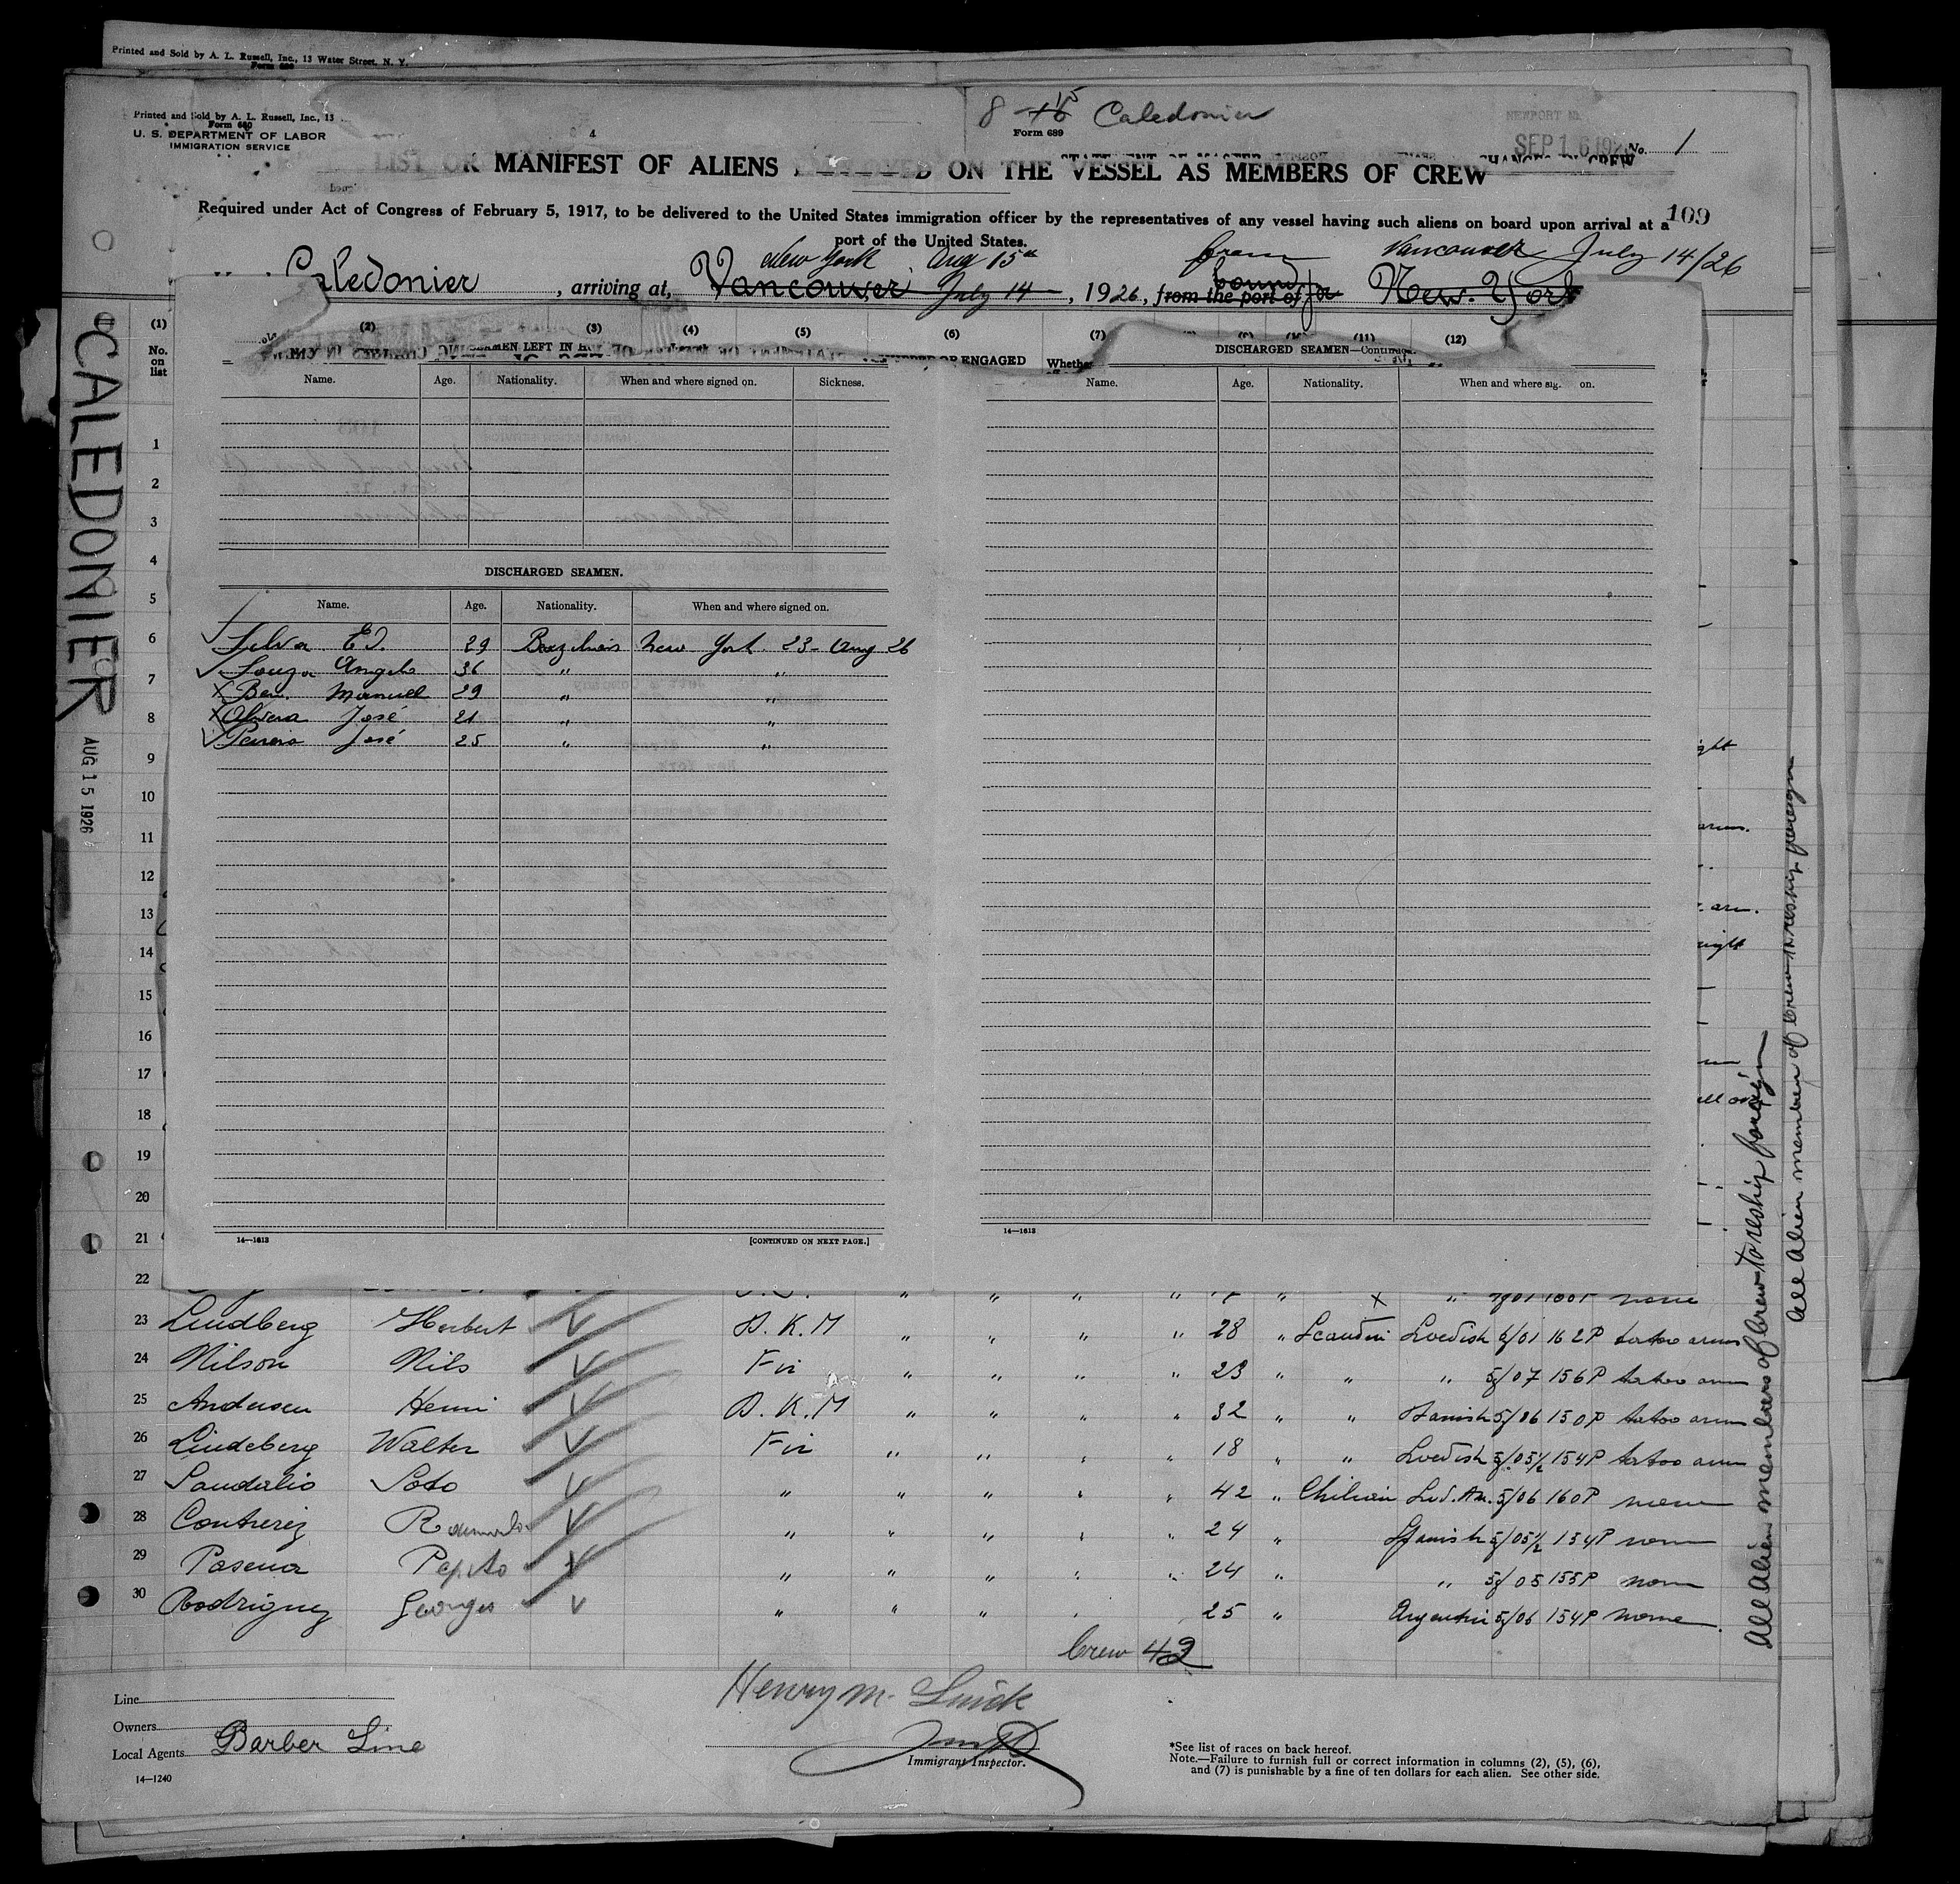 Printed and Sold by A. L. Russell, Inc., 13 Water Street, N. Y.
Form 680
Printed and Sold by A. L. Russell, Inc., 13
Form 680
U. S. DEPARTMENT OF LABOR
IMMIGRATION SERVICE
8 15 Caledonier
Form 689
NEWPORT
SEP 16 192
No. 1
LIST OR MANIFEST OF ALIENS ON THE VESSEL AS MEMBERS OF CREW
Required under Act of Congress of February 5, 1917, to be delivered to the United States immigration officer by the representatives of any vessel having such aliens on board upon arrival at a
port of the United States.
109
New York Aug 15th from Vancouver July 14/26
Caledonier, arriving at, Vancouver July 14, 1926, from the port of bound for New York
(1) (2) (3) (4) (5) (6) (7) (11) (12)
No. on list
SEAMEN LEFT IN
OR ENGAGED
Whether
DISCHARGED SEAMEN—Continued
Name. Age. Nationality. When and where signed on. Sickness.
Name. Age. Nationality. When and where sig. on.
CALEDONIER
AUG 15 1926
DISCHARGED SEAMEN.
Name. Age. Nationality. When and where signed on.
Silva Ed. 29 Brazilian New York 23- Aug 26
Souza Angelo 36 " "
Ben. Manuel 29 " "
Olivera José 21 " "
Pereira José 25 " "
1
2
3
4
5
6
7
8
9
10
11
12
13
14
15
16
17
18
19
20
21
22
14—1613
[CONTINUED ON NEXT PAGE.]
14—1613
23 Lindberg Herbert V D.K.M " " " " 28 " Scandin Swedish 6/01 162P tatoo arms
24 Nilson Nils V Fir " " " " 23 " " " 5/07 156P tatoo arm
25 Andersen Henri V D.K.M " " " " 32 " " Danish 5/06 150P tatoo arm
26 Lindeberg Walter V Fir " " " " 18 " " Swedish 5/05½ 154P tatoo arm
27 Sandalio Soto V " " " " " 42 " Chilian Sud.Am. 5/06 160P none
28 Contrerez V " " " " " 24 " Spanish 5/05½ 154P none
29 Pasena Pepito V " " " " " 24 " " 5/05 155P none
30 Rodriguez Georges V " " " " " 25 " Argentin 5/06 154P none
Crew 42
All Alien members of Crew to reship foreign
All Alien members of Crew to reship foreign
Line
Owners
Local Agents Barber Line
14—1240
Henry M.
Immigrant Inspector.
*See list of races on back hereof.
Note.—Failure to furnish full or correct information in columns (2), (5), (6),
and (7) is punishable by a fine of ten dollars for each alien. See other side.